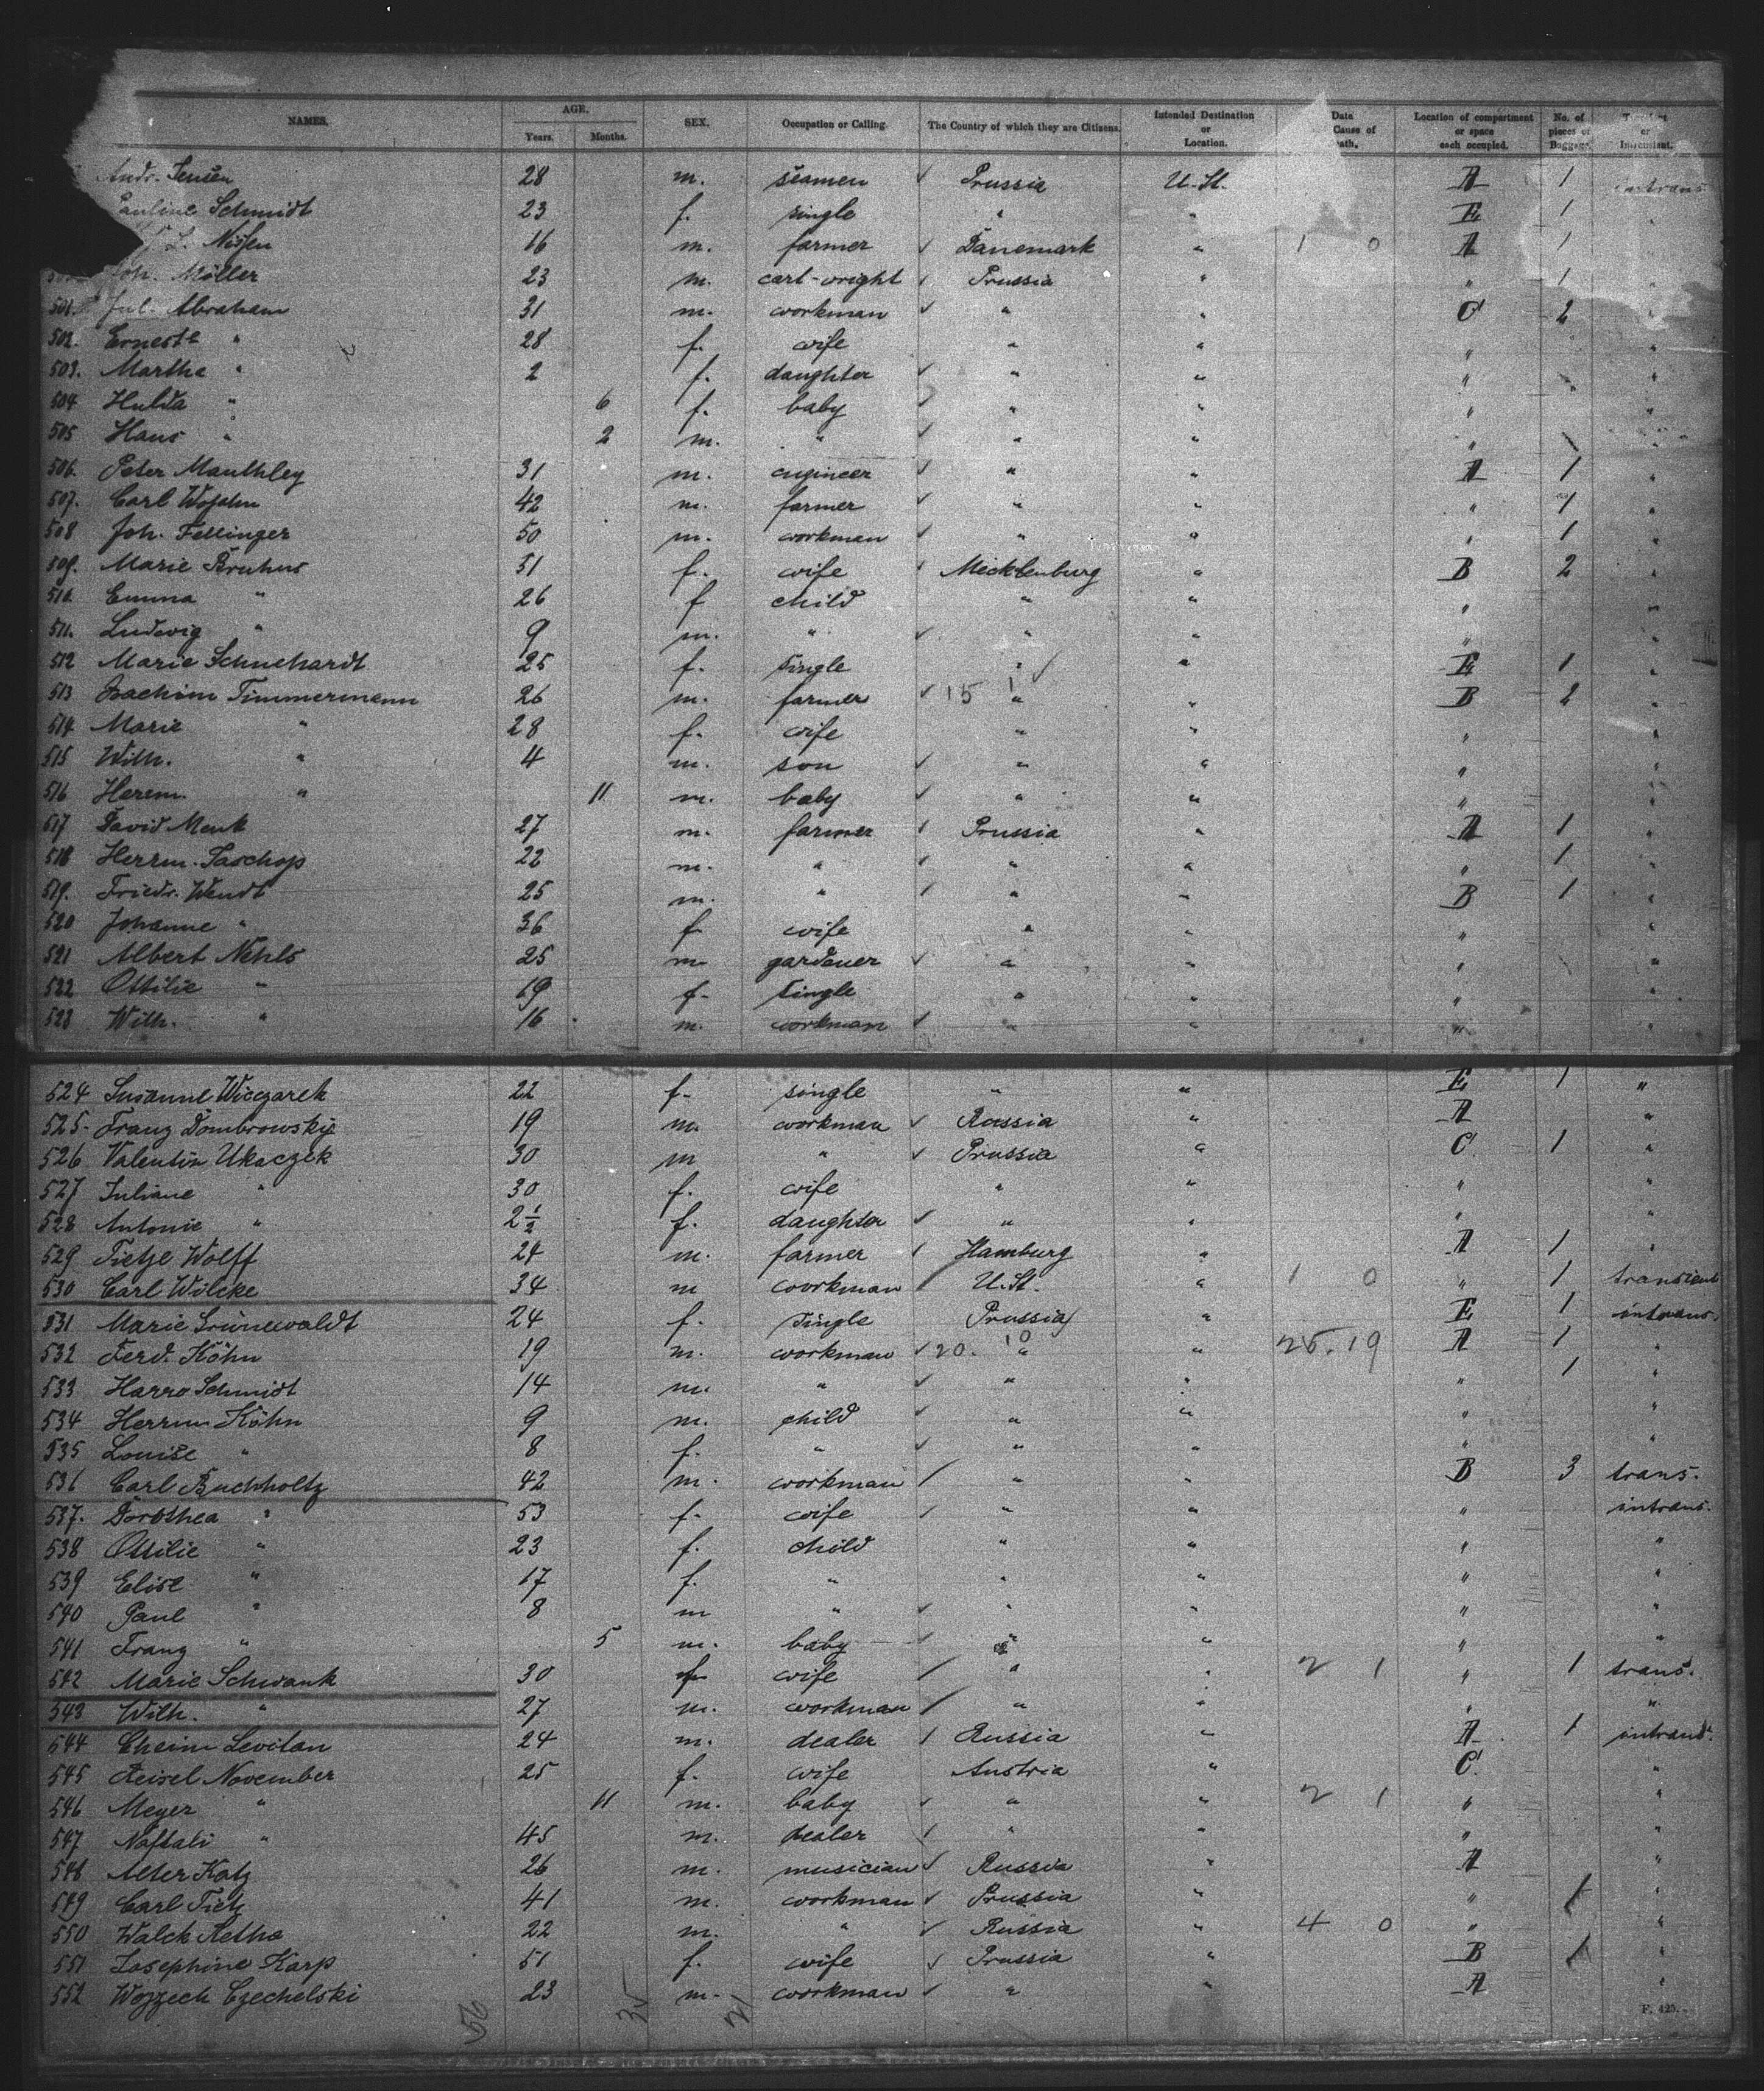 NAMES. AGE. Years. Months. SEX. Occupation or Calling. The Country of which they are Citizens. Intended Destination or Location. Date Cause of Location of compartment or space each occupied. No. of pieces of Baggage. or
Andr. Jensen 28 m. seamen Prussia U. St. A 1 intrans
Pauline Schmidt 23 f. single " " E 1 "
Nissen 16 m. farmer ✓ Dänemark " 1 0 A 1 "
Joh. Möller 23 m. cart-wright ✓ Prussia " " 1 "
501. Jul. Abraham 31 m. workman ✓ " " C 2 "
502. Erneste " 28 f. wife " " " "
503. Martha " 2 f. daughter ✓ " " " "
504 Hulda " 6 f. baby ✓ " " " "
505 Hans " 2 m. " ✓ " " " "
506. Peter Mauthley 31 m. engineer ✓ " " A 1 "
507. Carl Wojahn 42 m. farmer ✓ " " " 1 "
508 Joh. Fellinger 50 m. workman ✓ " " " 1 "
509. Marie Bruhns 51 f. wife ✓ Mecklenburg " B 2 "
510. Emma " 26 f child " " " "
511. Ludwig " 9 m. " ✓ " " " "
512 Marie Schuchardt 25 f. single " ✓ " E 1 "
513 Joachim Timmermann 26 m. farmer ✓ 15 1 " " B 2 "
514 Marie " 28 f. wife " " " "
515 Wilh. " 4 m. son ✓ " " " "
516 Herm. " 11 m. baby ✓ " " " "
517 David Menk 27 m. farmer ✓ Prussia " A 1 "
518 Herrm. Paschop 22 m. " ✓ " " " 1 "
519. Friedr. Wendt 25 m. " ✓ " " B 1 "
520 Johanne " 36 f wife " " " "
521 Albert Nehls 25 m gardener ✓ " " " "
522 Ottilie " 19 f. single " " " "
523 Wilh. " 16 m. workman ✓ " " " "
524 Susanne Wieczarek 22 f. single " " E 1 "
525. Franz Dombrowsky 19 m. workman ✓ Russia " A "
526 Valentin Ukaczek 30 m " ✓ Prussia " C 1 "
527 Juliane " 30 f. wife " " " "
528 Antonie " 2½ f. daughter ✓ " " " "
529 Tietje Wolff 24 m. farmer ✓ Hamburg " A 1 "
530 Carl Wilcke 34 m workman / U. St. " 1 0 " 1 transient
531 Marie Grünewaldt 24 f. single Prussia " E 1 intrans.
532 Ferd. Köhn 19 m. workman ✓ 20. 10 " " 25.19 A 1 "
533 Harro Schmidt 14 m. " ✓ " " " 1 "
534 Herrm Köhn 9 m. child ✓ " " " "
535 Louise " 8 f. " ✓ " " " "
536 Carl Buchholtz 42 m. workman / " " B 3 trans.
537. Dorothea " 53 f. wife / " " " intrans.
538 Ottilie " 23 f. child " " " "
539 Elise " 17 f. " " " " "
540 Paul " 8 m " ✓ " " " "
541 Franz " 5 m. baby ✓ " " " "
542 Marie Schwank 30 f wife / " " 2 1 " 1 trans.
543 Wilh. " 27 m. workman / " " " "
544 Cheim Levitan 24 m. dealer / Russia " A 1 intrans.
545 Reisel November 25 f. wife Austria " C "
546 Meyer " 11 m. baby ✓ " " 2 1 " "
547 Naftali " 45 m. dealer / " " " "
548 Alter Katz 26 m. musician ✓ Russia " A "
549 Carl Tietz 41 m. workman ✓ Prussia " " 1 "
550 Walck Ketha 22 m. " ✓ Russia " 4 0 " "
551 Josephine Karp 51 f. wife ✓ Prussia " B 1 "
552 Wojzech Czechelski 23 m. workman ✓ " " A "
56 35 21
F. 425.